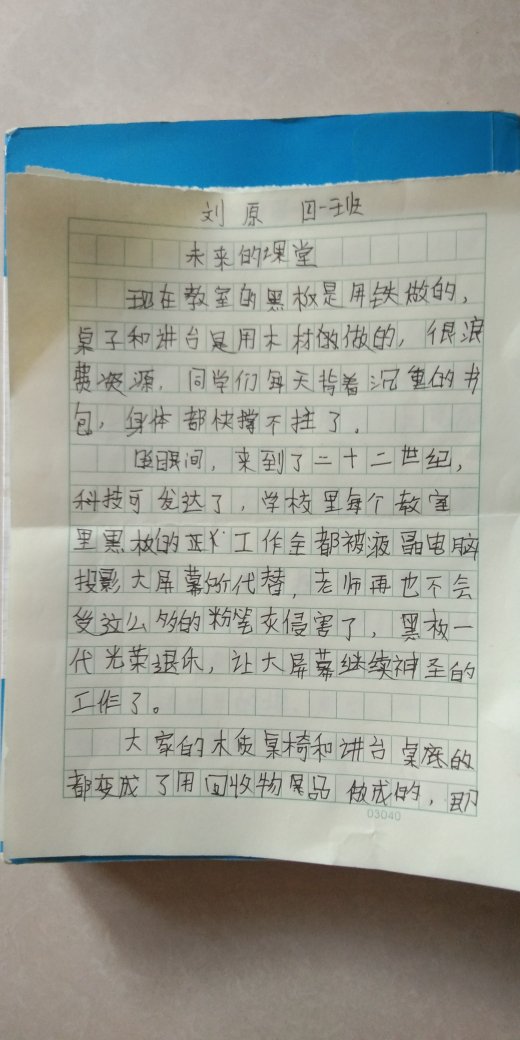 刘原 四一班
未来的课堂
现在教室的黑板是用铁做的，
桌子和讲台是用木材的做的，很浪
费资源，同学们每天背着沉重的书
包，身体都快撑不住了。
间，来到了二十二世纪，
科技可发达了，学校里每个教室
里黑板的 工作全都被液晶电脑
投影大屏幕所代替，老师再也不会
受这么多的粉笔灰侵害了，黑板一
代光荣退休，让大屏幕继续神圣的
工作了。
大家的木质桌椅和讲台桌 的
都变成了用回收物 品做成的，即
03040